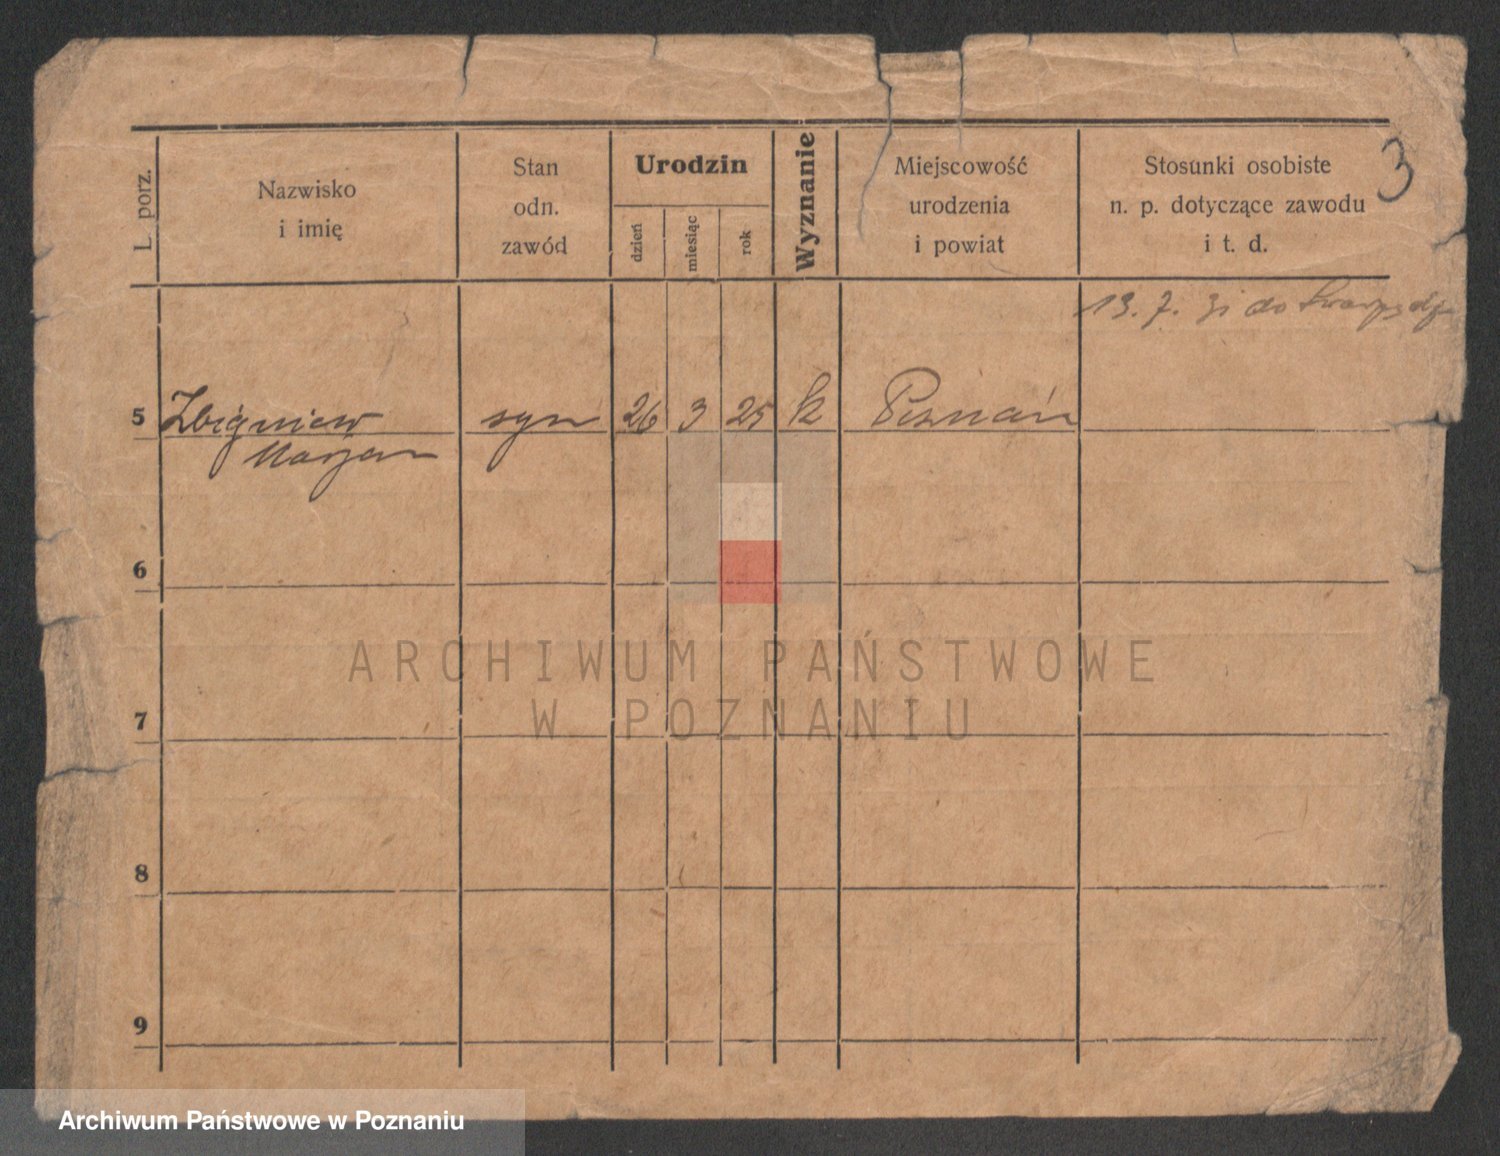 3
L. porz.
Nazwisko
i imię
Stan
odn.
zawód
Urodzin
dzień
miesiąc
rok
Wyznanie
Miejscowość
urodzenia
i powiat
Stosunki osobiste
n. p. dotyczące zawodu
i t. d.
13. 7. 31 do
5 Zbigniew syn 26 3 25 k Poznań
Marjan
6
7
8
9
ARCHIWUM PAŃSTWOWE
W POZNANIU
Archiwum Państwowe w Poznaniu